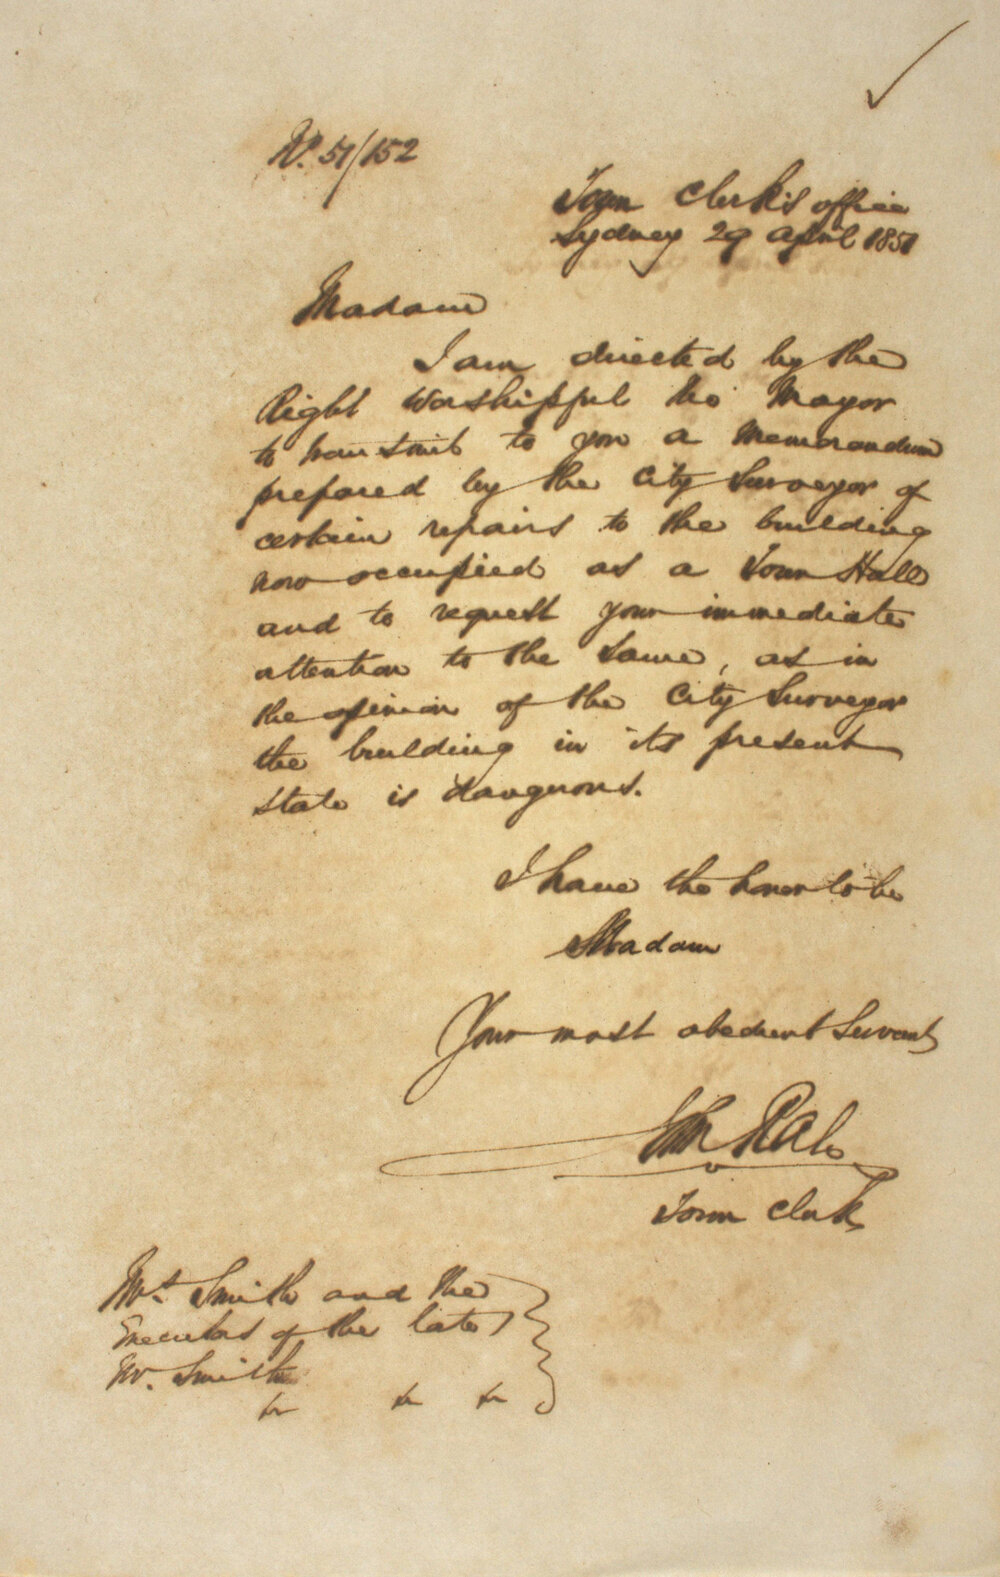 No. 51/152
Town Clerk's office
Sydney 29 April 1851
Madam
I am directed by the
Right Worshipful the Mayor
to transmit to you a Memorandum
prepared by the City Surveyor of
certain repairs to the building
now occupied as a Town Hall
and to request your immediate
attention to the same, as in
the opinion of the City Surveyor
the building in its present
state is dangerous.
I have the honor to be
Madam
Your most obedient Servant
Town Clerk
Mrs. Smith and the
Executors of the late
Mr. Smith